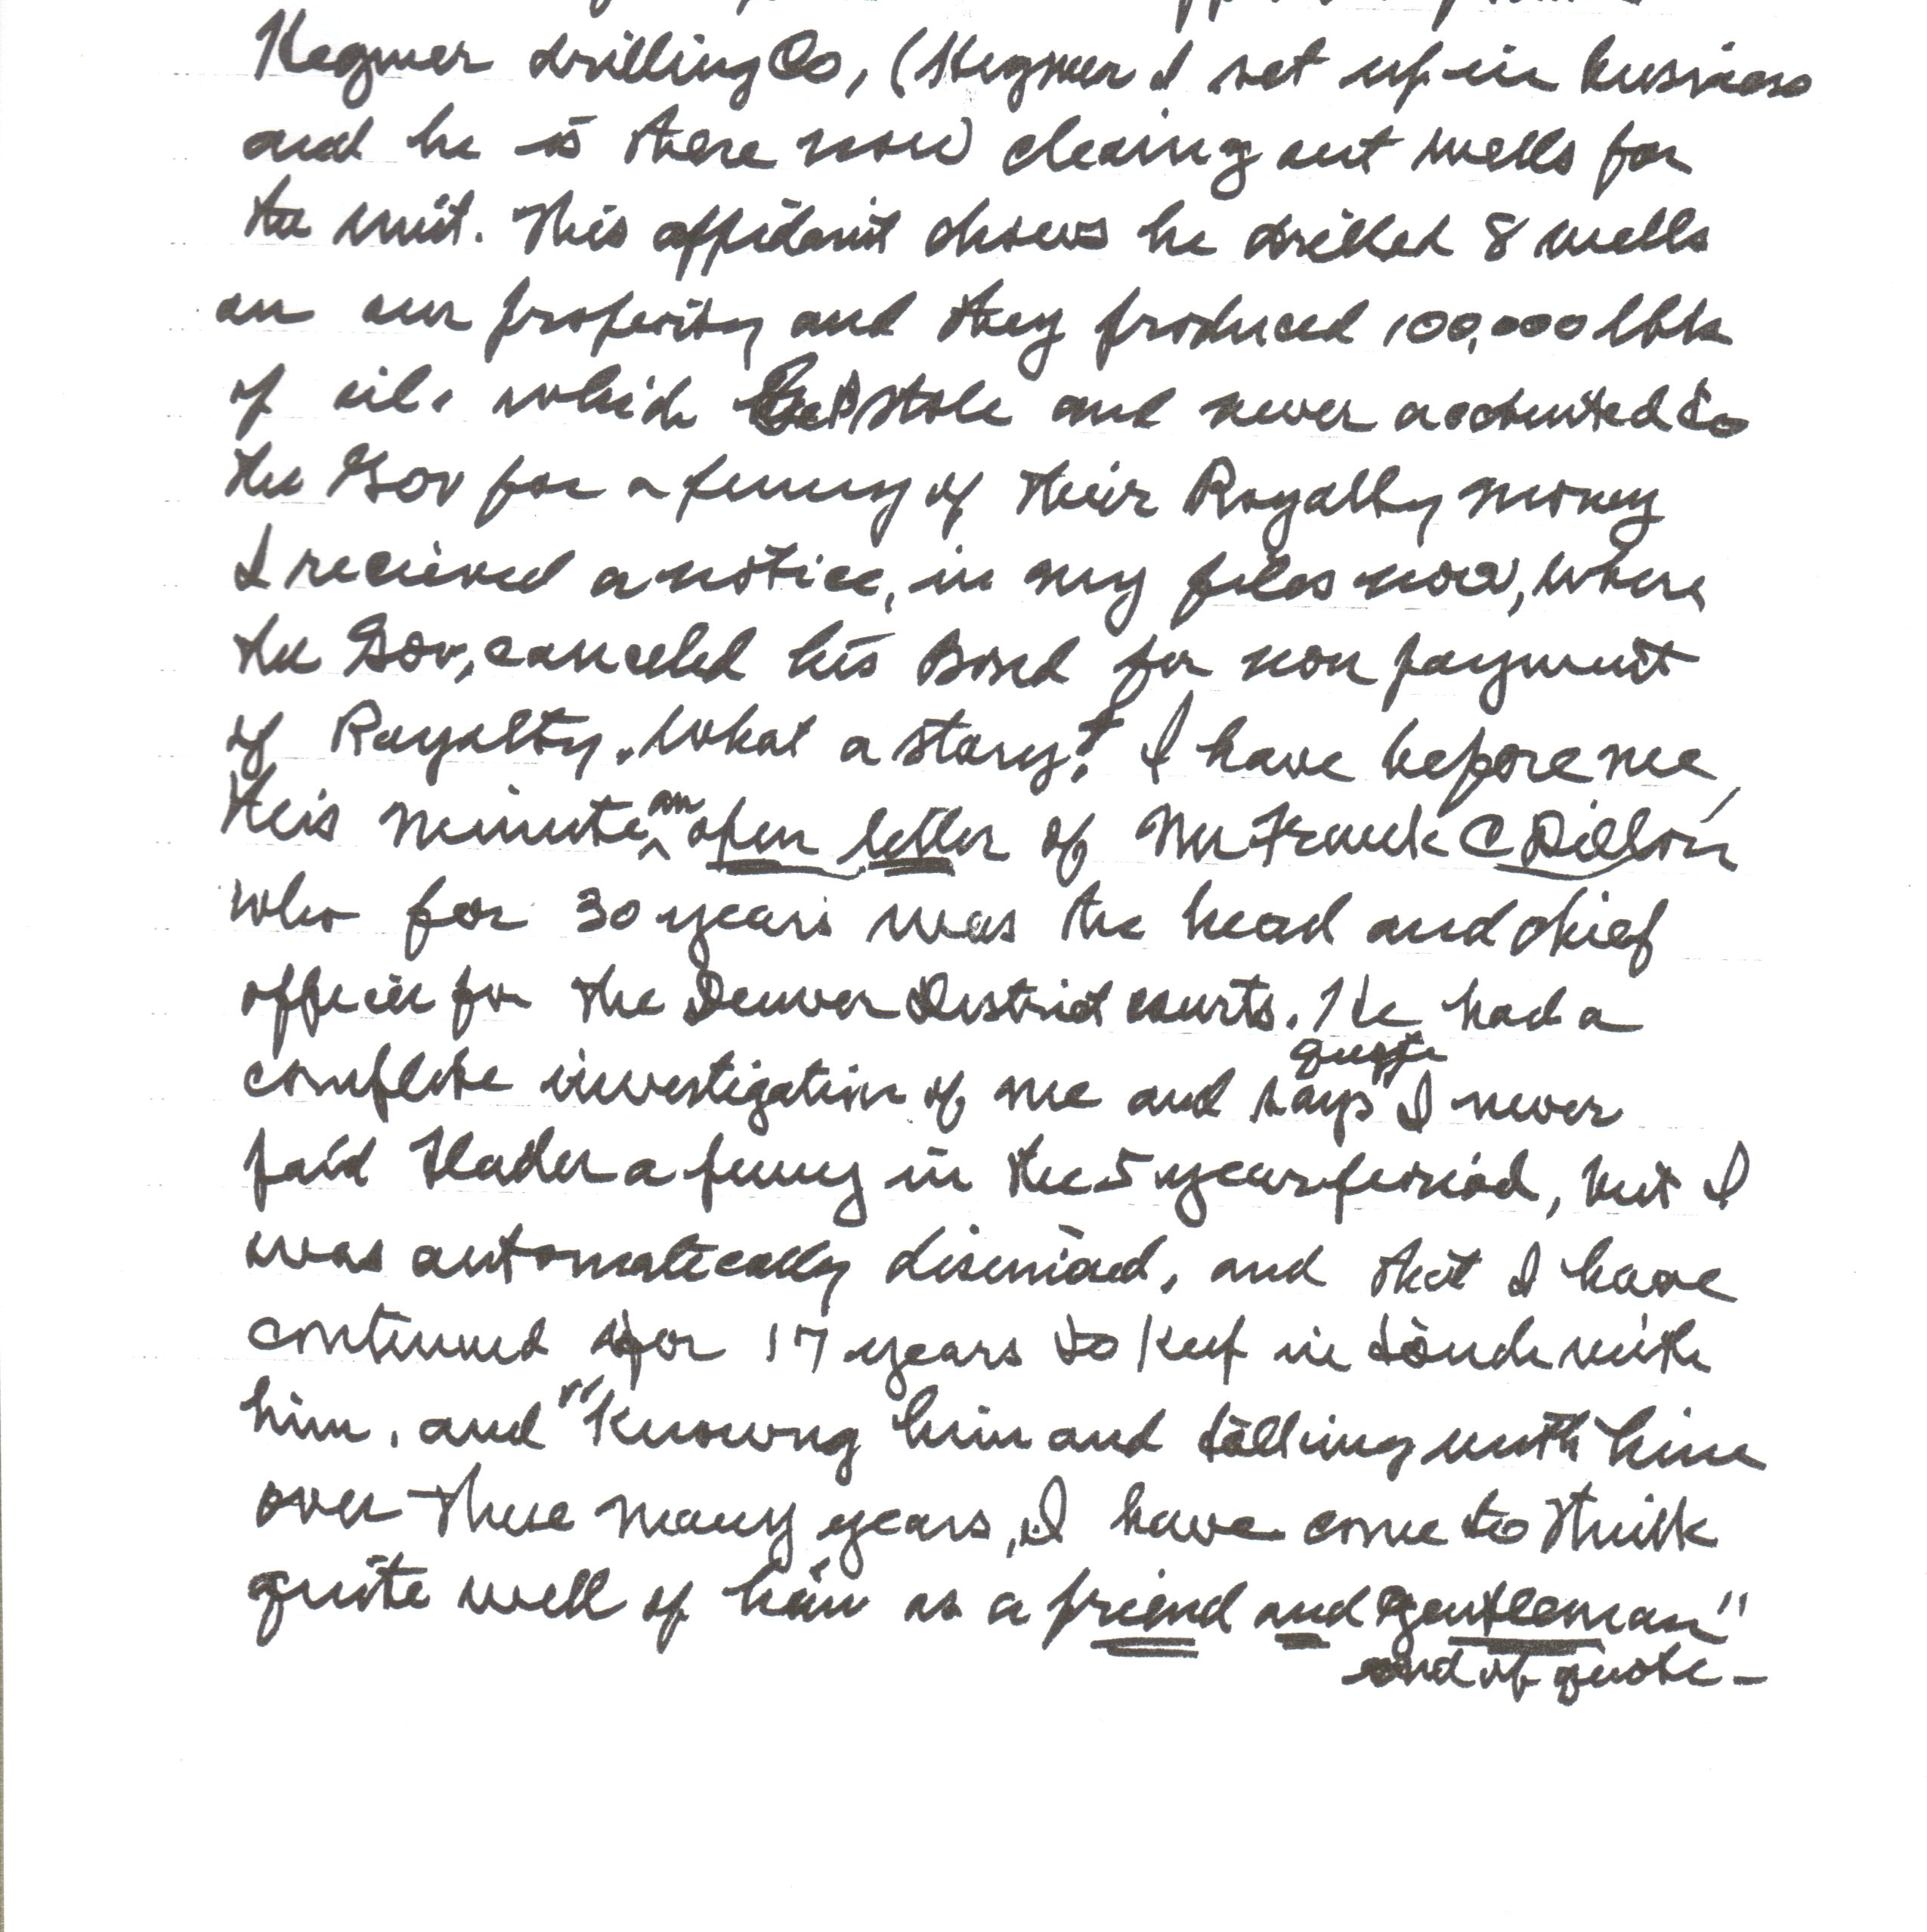 Kegmer drilling Co, (Kegmer I set up in business
and he is there now) cleaing out wells for
the unit. This affidavit shows he drilled 8 wells
on our property and they produced 100,000 bbls
of oil. which stole and never accounted to
the Gov for a penny of their Royalty money
I recieved a notice, in my files now, where
the Gov, canceled his Bond for non payment
of Royalty. What a story! I have before me,
this minute an open letter of Mr Frank C Dillon
who for 30 years was the head and chief
officer for the Denver District courts. He had a
complete investigation of me and says quote "I never
paid Hader a penny in the 5 year period, but I
was automatically dismised, and that I have
continued for 17 years to keep in touch with
him. and "Knowing him and talking with him
over these many years, I have come to think
quite well of him as a friend and gentleman"
end of quote -